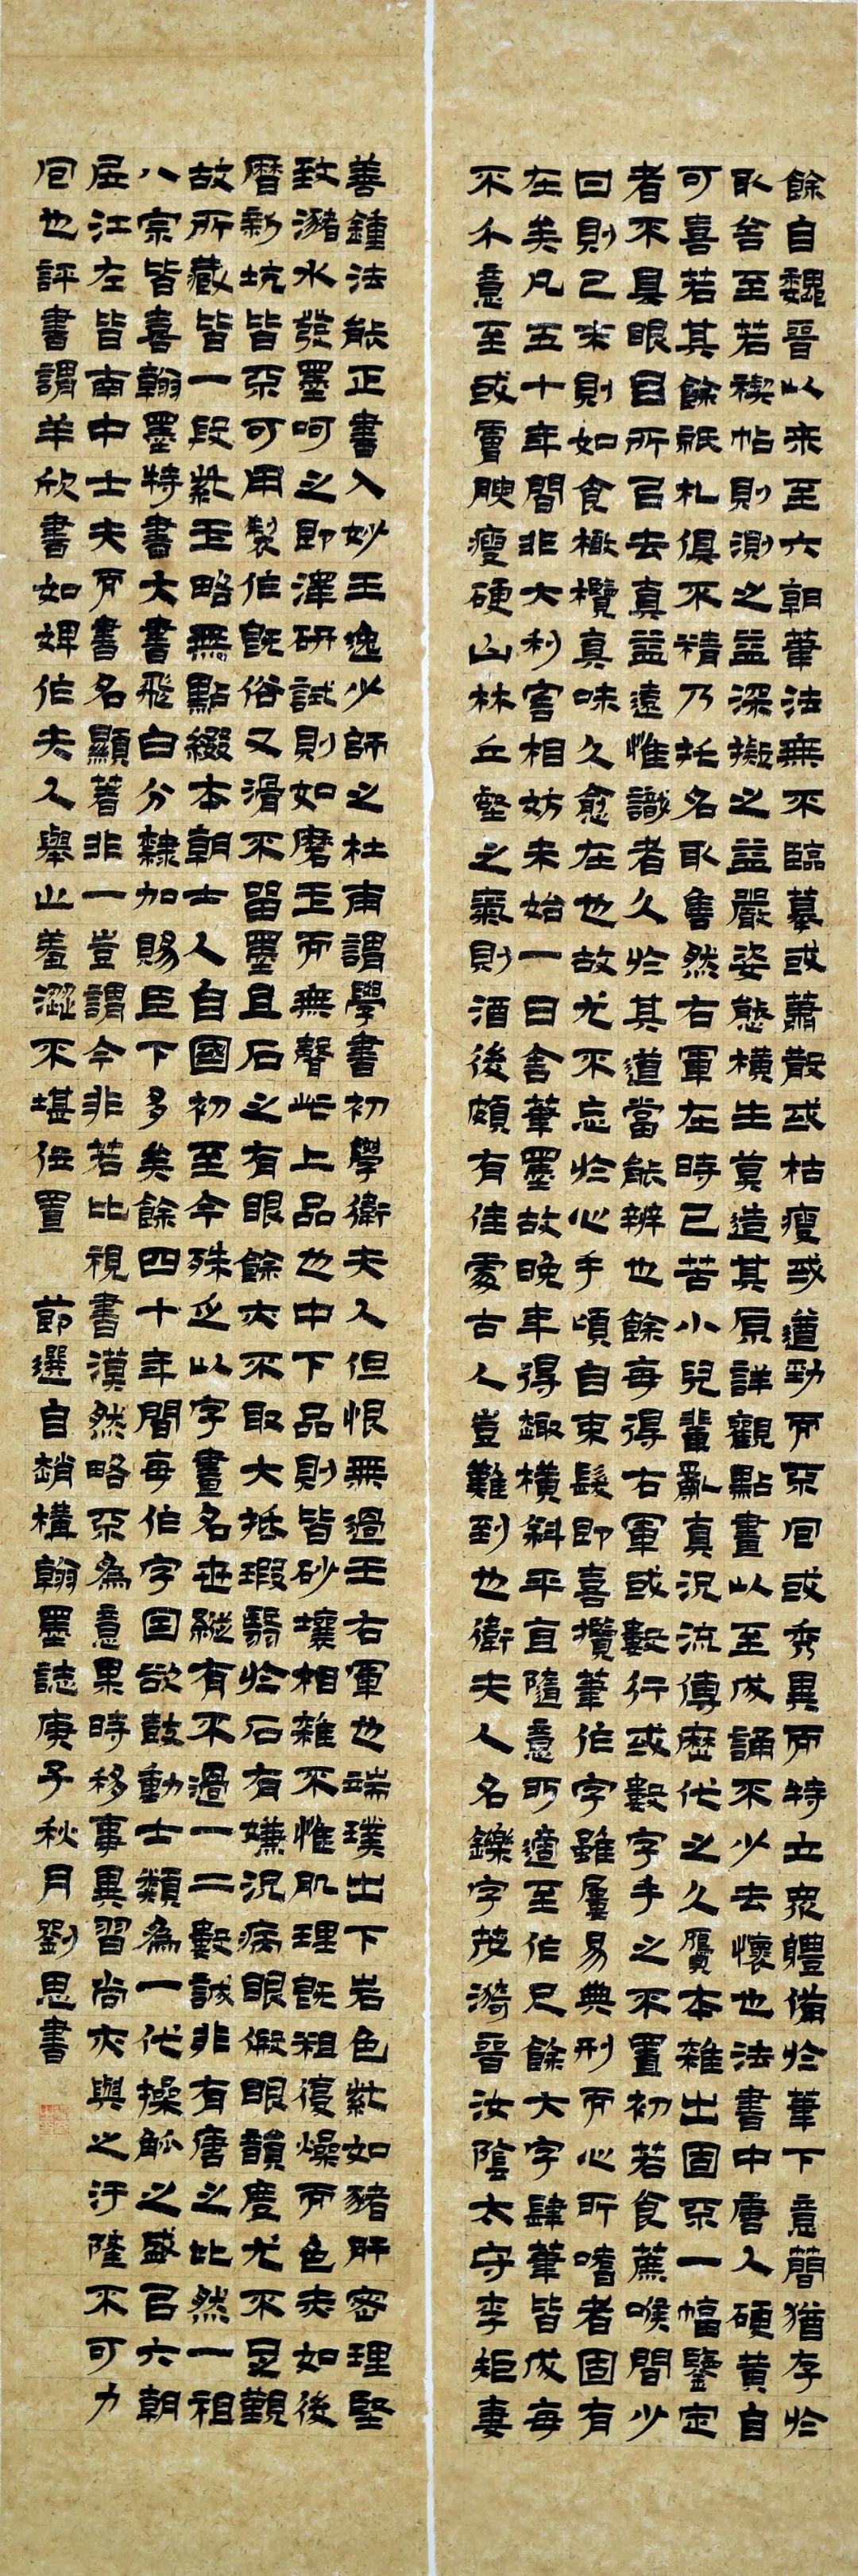 餘自魏晉以来至六朝筆法無不臨摹或蕭散或枯瘦或遒勁而不回或秀異而特立眾軆備於筆下意簡猶存於
取舍至若禊帖則測之益深擬之益嚴姿態橫生莫造其原詳觀點畫以至成誦不少去懷也法書中唐人硬黄自
可喜若其餘紙札俱不精乃托名取售然右軍在時已苦小兒輩亂真況流傳歷代之久贗本雜出固不一幅鑒定
者不具眼目所以去真益遠惟識者久於其道當能辨也餘每得右軍或數行或數字手之不置初若食蔗喉間少
曰則已末則如食橄欖真味久愈在也故尤不忘於心手頃自束髮即喜攬筆作字雖屢易典刑而心所嗜者固有
在矣凡五十年間非大利害相妨未始一日舍筆墨故晚年得趣橫斜平直隨意所適至作尺餘大字肆筆皆成每
不介意至或膚腴瘦硬山林丘壑之氣則酒後頗有佳處古人豈難到也衛夫人名鑠字茂漪晉汝陰太守李矩妻
善鍾法能正書入妙王逸少師之杜甫謂學書初學衛夫人但恨無過王右軍也端璞出下岩色紫如豬肝密理堅
致瀦水發墨呵之即澤研試則如磨玉而無聲此上品也中下品則皆砂壤相雜不惟肌理既粗復燥而色赤如後
曆新坑皆不可用製作既俗又滑不留墨且石之有眼餘亦不取大抵瑕翳於石有嫌況病眼假眼韻度尤不足觀
故所藏皆一段紫玉略無點綴本朝士人自國初至今殊乏以字畫名世縱有不過一二數誠非有唐之比然一祖
八宗皆喜翰墨特書大書飛白分隸加賜臣下多矣餘四十年間每作字因欲鼓動士類為一代操觚之盛以六朝
居江左皆南中士夫而書名顯著非一豈謂今非若比視書漠然略不為意果時移事異習尚亦與之汙隆不可力
回也評書謂羊欣書如婢作夫人舉止羞澀不堪位置 節選自趙構翰墨誌庚子秋月劉思書